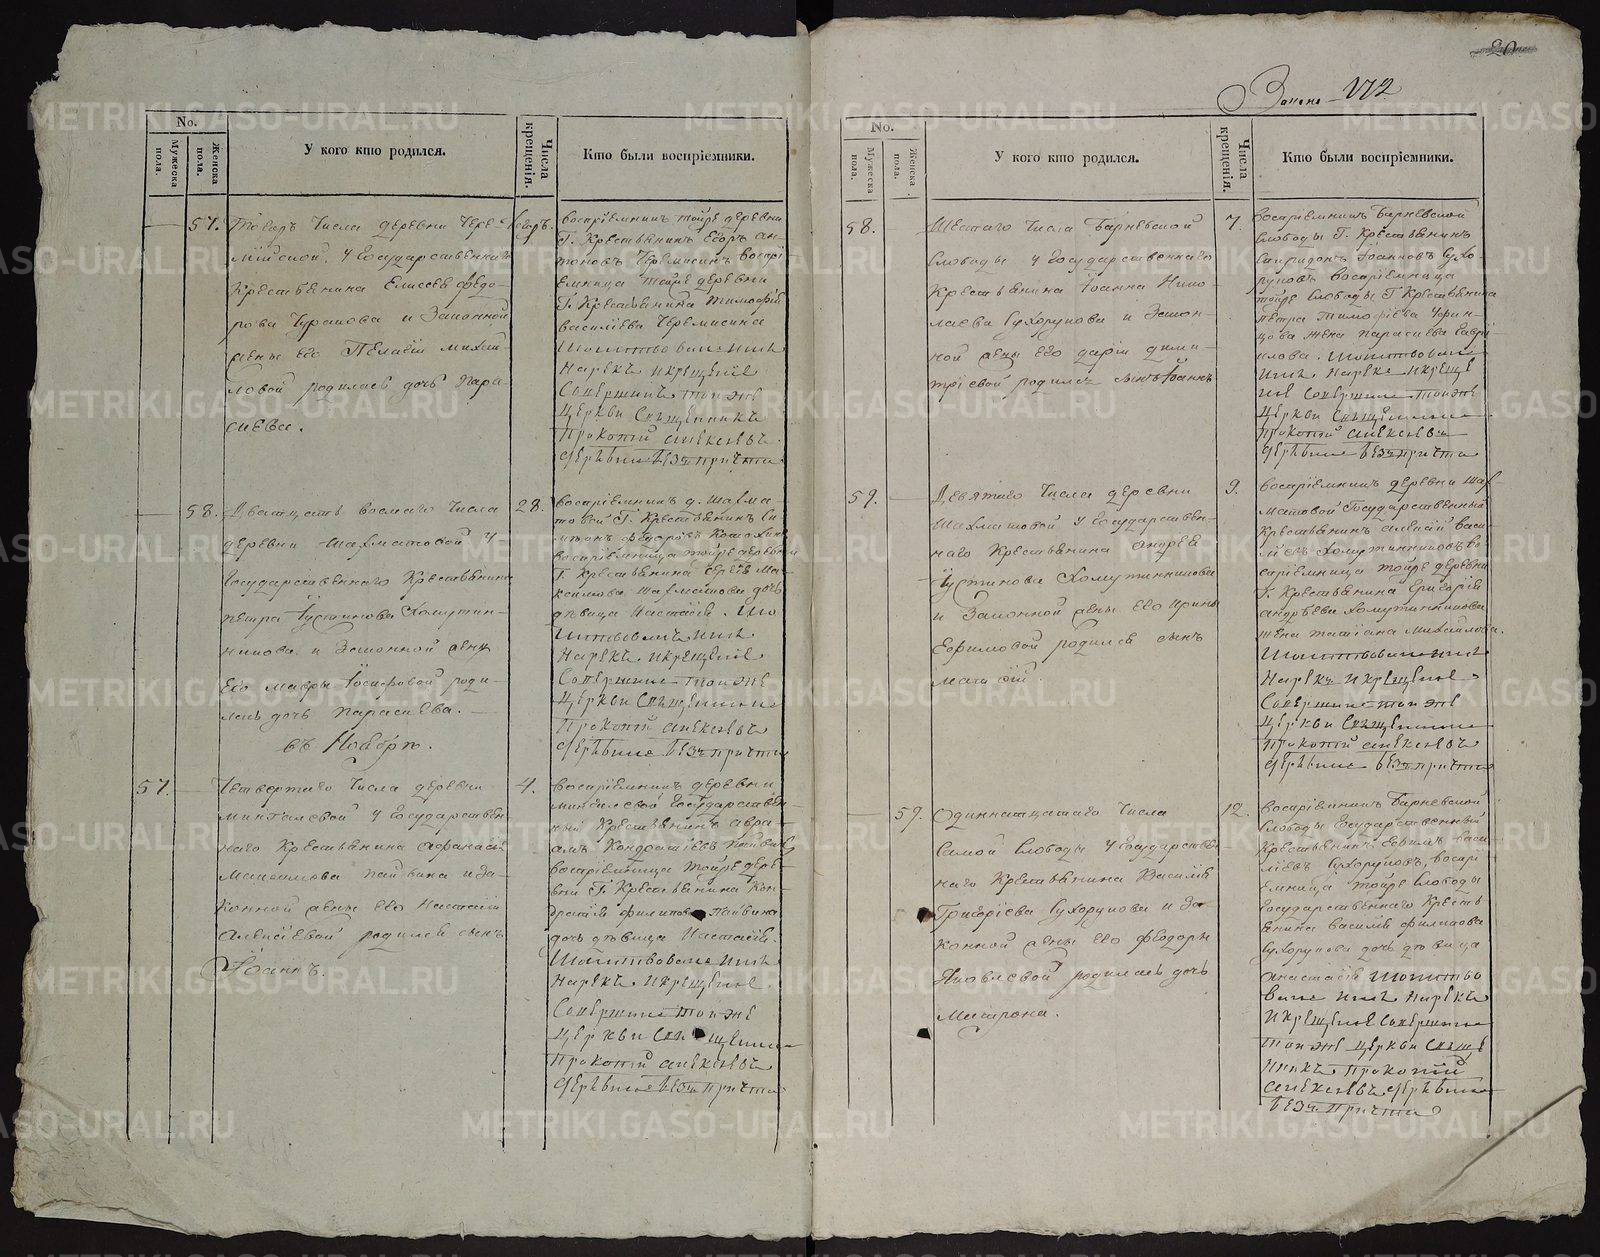 No.
Мужеска пола.
Женска пола.
У кого кто родился.
Числа крещенія.
Кто были воспріемники.
57.
Числа деревни
у Государственнаго
Крестьянина Елисея Федо-
рова и Законной
жены его Пелагіи Михай-
ловой родилась дочь Пара-
скева.
воспріемникъ тойже деревни
Г. Крестьянинъ Егоръ Ан-
тоновъ Черемисинъ воспрі
емница тойже деревни
Г. Крестьянина Тимофея
Василіева Черемисина
Молитвовалъ имя
Нарекъ и крещеніе
Совершилъ тоя же
Церкви Священникъ
Прокопій Алексіевъ
безъ причта
58.
Дватцать восмаго Числа
деревни Шахматовой у
Государственнаго Крестьянина
Петра Іустинова Хомутин-
никова и Законной жены
Его Мавры Іосифовой роди-
лась дочь Параскева.
въ Ноябрѣ.
28.
воспріемникъ д. Шахма-
товой Г. Крестьянинъ
Федоровъ
воспріемница тойже деревни
Г. Крестьянина Сергея Ма-
ксимова Шахматова дочь
дѣвица Настасія. Мо
литвовалъ имя
Нарекъ и крещеніе
Совершилъ тоя же
Церкви Священникъ
Прокопій Алексіевъ
безъ причта
57.
Четвертаго Числа деревни
у Государствен
наго Крестьянина Афанасія
Максимова Пайвина и За-
конной жены его Настасіи
Алексіевой родился сынъ
Іоаннъ.
4.
воспріемникъ деревни
Государствен-
ный Крестьянинъ Авра-
амъ Кондратіевъ Пайвинъ
воспріемница тойже дере-
вни Г. Крестьянина Кон-
дратія Филипова Пайвина
дочь дѣвица Настасія.
Молитвовалъ имя
Нарекъ и крещеніе
Совершилъ тоя же
Церкви Священникъ
Прокопій Алексіевъ
безъ причта
20
172
No.
Мужеска пола.
Женска пола.
У кого кто родился.
Числа крещенія.
Кто были воспріемники.
58.
Шестаго Числа Барневской
Слободы у Государственнаго
Крестьянина Іоанна Нико-
лаева Сухорукова и Закон-
ной жены Его Даріи Дими-
тріевой родился сынъ Іоаннъ
7.
воспріемникъ Барневской
Слободы Г. Крестьянинъ
Спиридонъ Іоанновъ Сухо-
руковъ воспріемница
тойже Слободы Г. Крестьянина
Петра Тимофіева
жена Параскева Гаврі
илова. Молитвовалъ
имя Нарекъ и креще
ніе Совершилъ тоя же
Церкви Священникъ
Прокопій Алексіевъ
безъ причта
59.
Девятаго Числа деревни
Шахматовой у Государствен-
наго Крестьянина Андрея
Іустинова Хомутинникова
и Законной жены Его Ирины
Ефимовой родился сынъ
Матѳій.
9.
воспріемникъ деревни Шах-
матовой Государственный
Крестьянинъ Алексій Васи-
ліевъ Хомутинниковъ во-
спріемница тойже деревни
Г. Крестьянина Григорія
Андрѣева Хомутинникова
жена Татіана Михайлова.
Молитвовалъ имя
Нарекъ и крещеніе
Совершилъ тоя же
Церкви Священникъ
Прокопій Алексіевъ
безъ причта
59.
Одиннатцатаго Числа
Самой Слободы у Государствен
наго Крестьянина Василія
Григоріева Сухорукова и За-
конной жены Его Феодоры
Яковлевой родилась дочь
Матрона.
12.
воспріемникъ Барневской
Слободы Государственный
Крестьянинъ Васи-
ліевъ Сухоруковъ, воспрі
емница тойже Слободы
Государственнаго Кресть
янина Василія Филипова
Сухорукова дочь дѣвица
Анастасія Молитво
валъ имя Нарекъ
и крещеніе Совершилъ
тоя же Церкви Свяще
нникъ Прокопій
Алексіевъ
безъ причта
METRIKI.GASO-URAL.RU